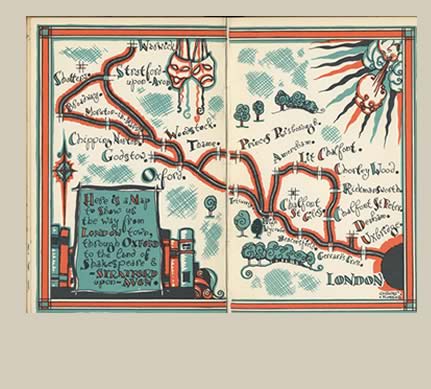 Warwick.
Stratford-
upon-Avon.
Shottery.
Moreton-in-Marsh
Chipping Norton.
Woodstock.
Godstow.
Oxford.
Thame.
Princes Risborough.
Amersham.
Lit Chalfont.
Chorley Wood.
Rickmansworth
Chalfont
St. Giles.
Chalfont St. Peter.
Denham.
Uxbridge.
Beaconsfield.
Gerrards Cross.
LONDON
Here is a Map
to Show us
the way from
LONDON town,
through OXFORD
to the land of
Shakespeare &
- STRATFORD
upon-AVON.